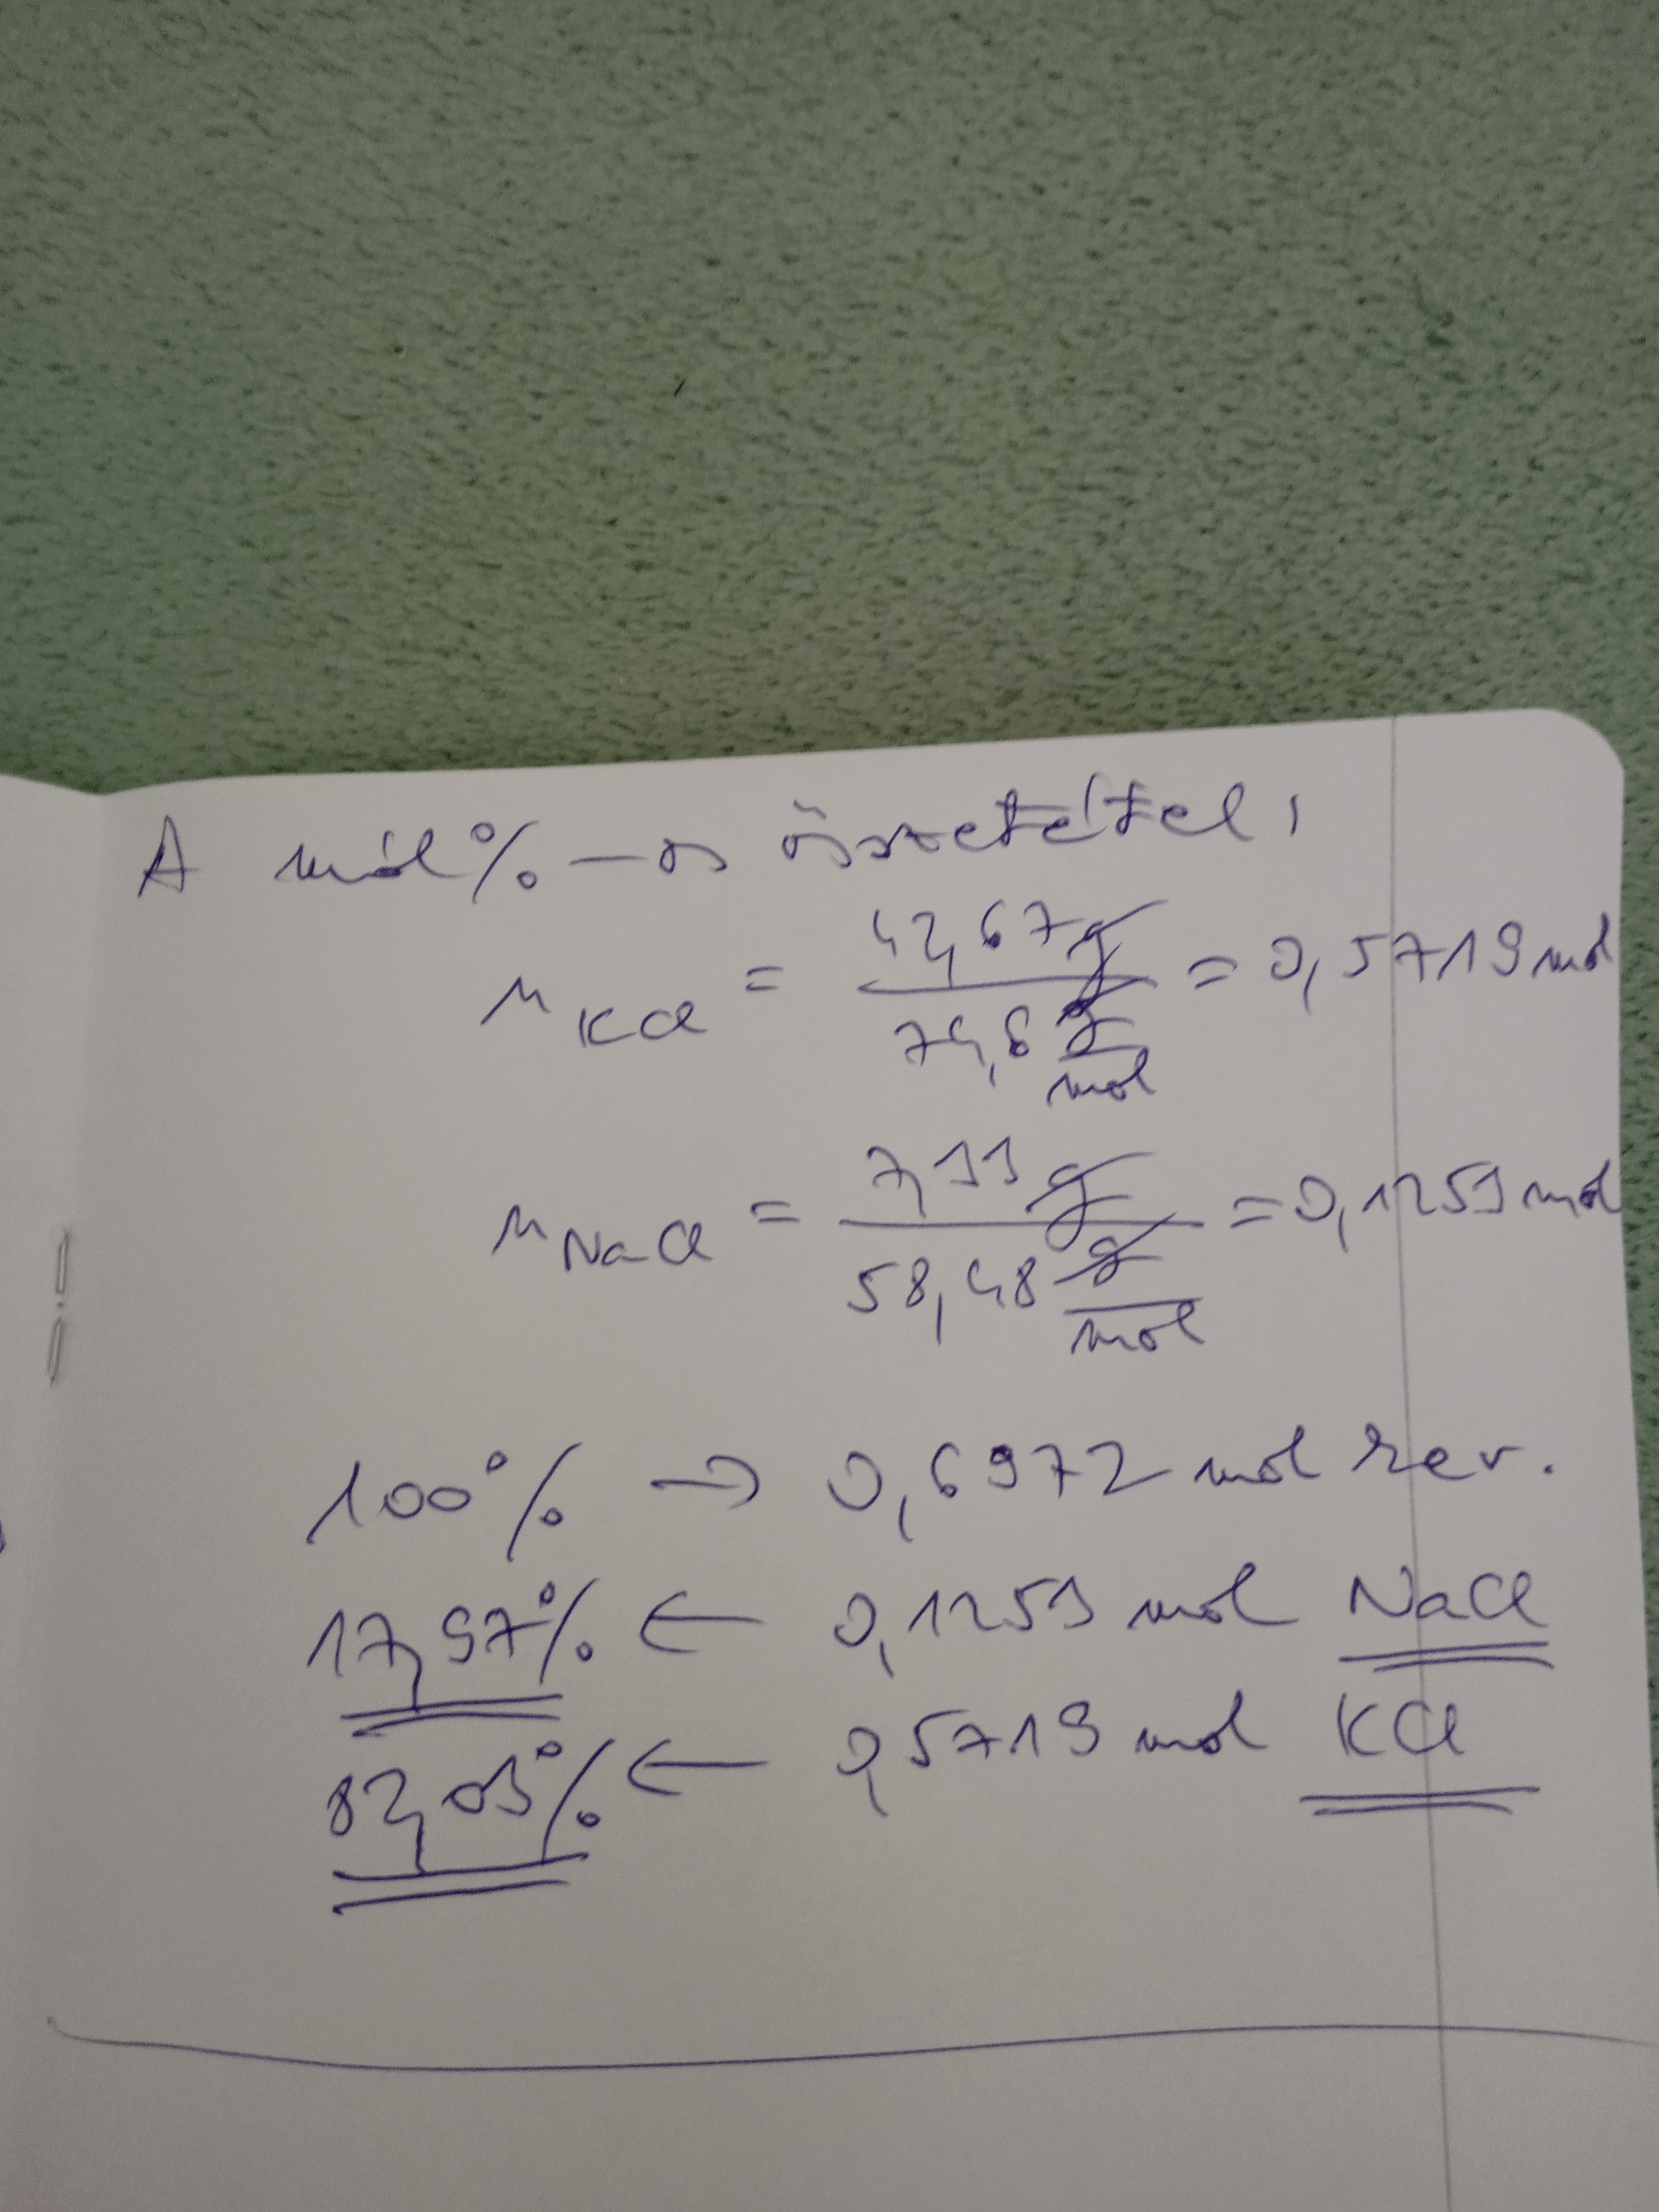 A mól%-os összetétel:
n KCl = 42,67 g / 74,6 g/mol = 0,5719 mol
n NaCl = 7,33 g / 58,48 g/mol = 0,1253 mol
100% → 0,6972 mol kev.
17,97% ← 0,1253 mol NaCl
82,03% ← 0,5719 mol KCl